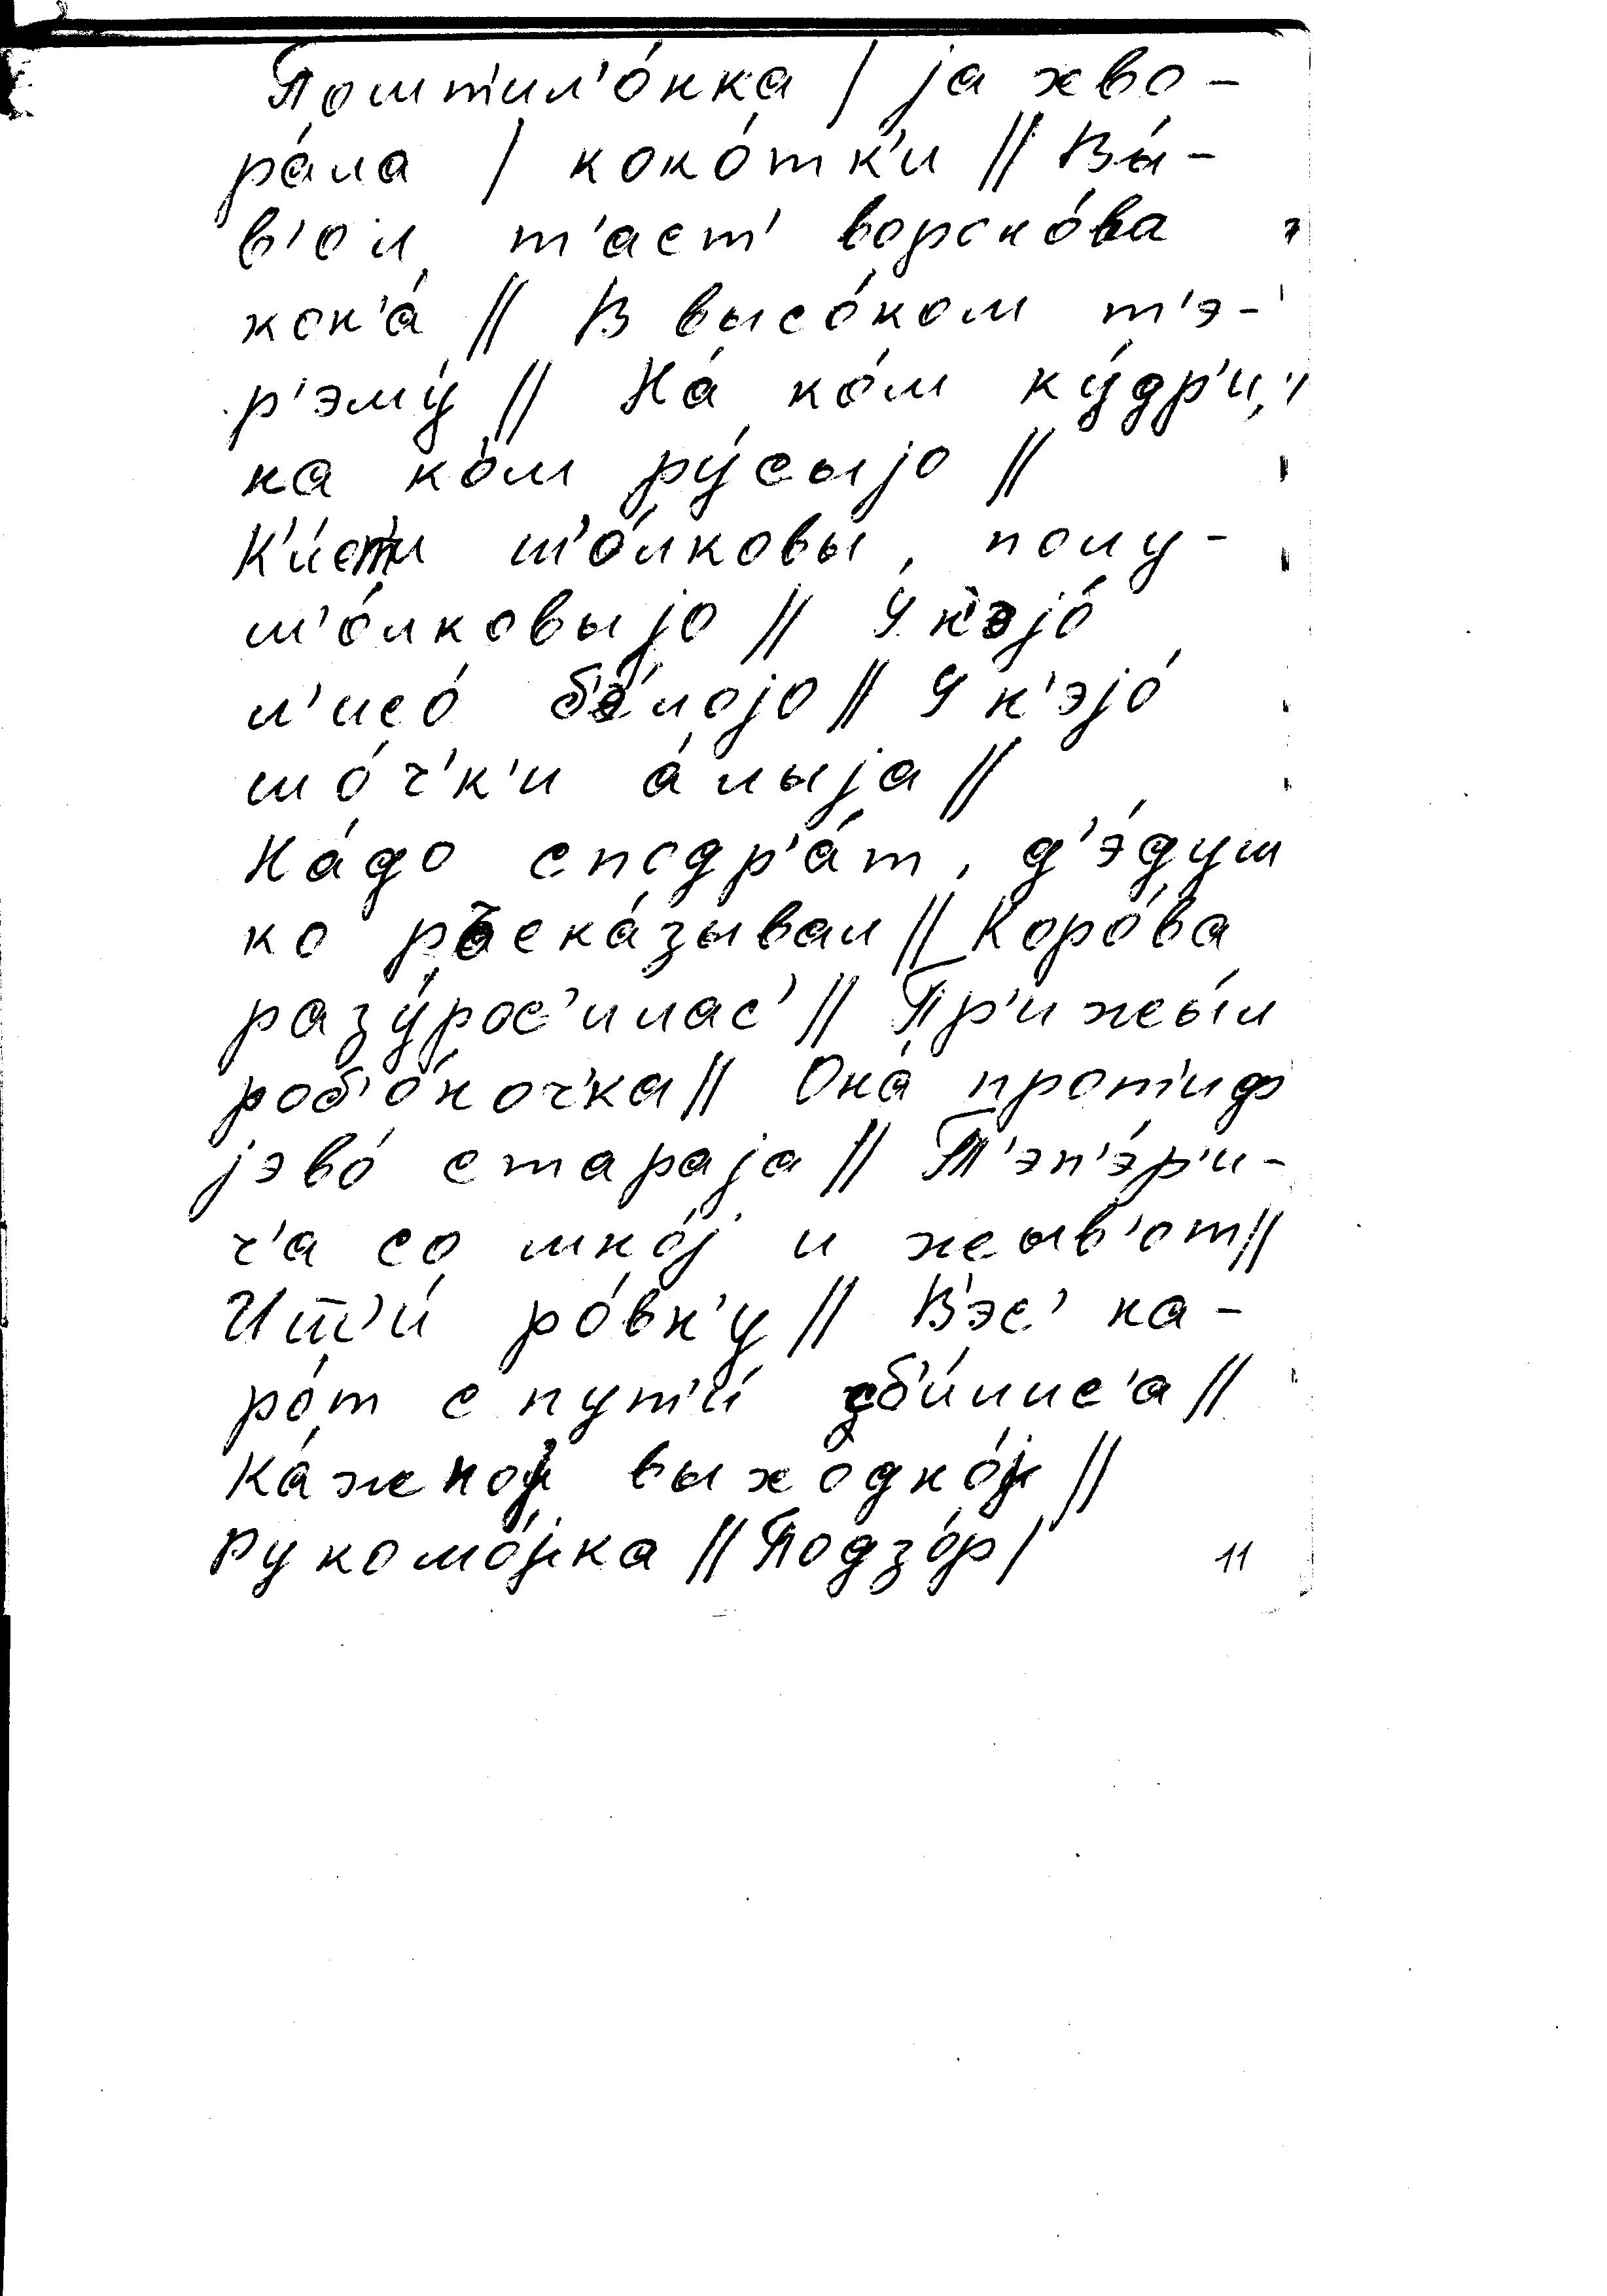 Поштил'о́нка / jа хво-
ра́ла / коко́тк'и // Вы́-
в'ол т'аст' ворсно́ва
кон'а́ // В высо́ком т'э-
р'эму́ // На́ ко́м ку́др'и,
на ко́м ру́сыjо //
К'и́сти ш'о́лковы, полу-
ш'о́лковыjо // У н'эjо́
л'исо́ б'э́лоjо // У н'эjо́
шо́ч'к'и а́лыjа //
На́до сподр'а́т, д'э́душ
ко ръска́зывал // Коро́ва
разу́рос'илас' // Пр'ижы́л
роб'о́ночка // Она́ прот'иф
jэво́ стараjа // Т'эп'э́р'и-
ч'а со мно́j и жыв'от //
Ит'и́ ро́вн'у // В'эс' на-
ро́т с пут'и́ зб'и́лис'а //
Ка́жноj выходно́j //
Рукомо́jка // Подзо́р /
11